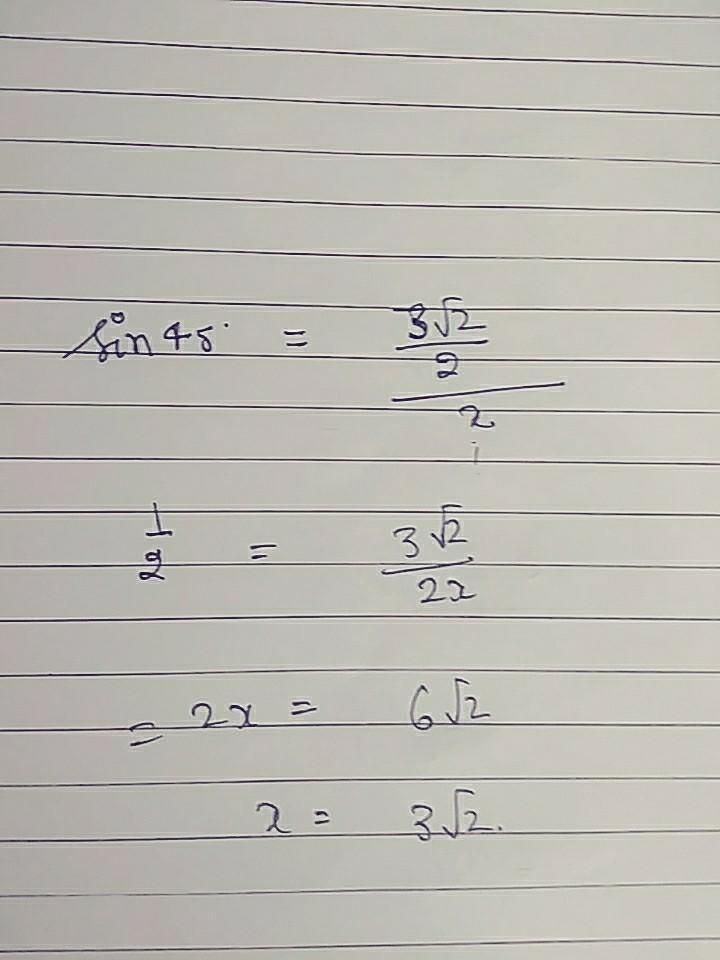 sin 45° = 3√2/2 / x
1/2 = 3√2/2x
= 2x = 6√2
x = 3√2.